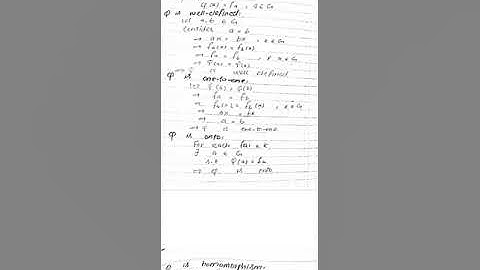 φ(a) = fa , a ∈ G
φ is well-defined:
Let a, b ∈ G
Consider a = b
→ ax = bx , x ∈ G
→ fa(x) = fb(x)
→ fa = fb , ∀ x ∈ G
→ φ(a) = φ(b)
→ φ is well defined
φ is one-to-one:
φ(a) = φ(b)
→ fa = fb
→ fa(x) = fb(x) , x ∈ G
→ ax = bx
→ a = b
→ φ is one-to-one
φ is onto:
For each fa ∈ K
∃ a ∈ G
s.t φ(a) = fa
→ φ is onto
φ is homomorphism: